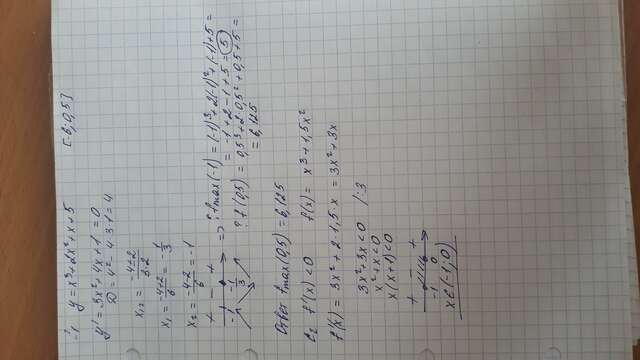 ~1 y = x³+2x²+x+5 [-6; 0,5]
y' = 3x²+4x+1 = 0
D = 4² - 4·3·1 = 4
x₁,₂ = (-4±2)/(3·2)
x₁ = (-4+2)/6 = -1/3
x₂ = (-4-2)/6 = -1
+ - +
-1 -1/3
=> f max(-1) = (-1)³+2(-1)²+(-1)+5 =
= -1+2-1+5 = 5
f(0,5) = 0,5³+2·0,5²+0,5+5 =
= 6,125
Ответ f max(0,5) = 6,125
f'(x) < 0 f(x) = x³+1,5x²
f'(x) = 3x²+2·1,5·x = 3x²+3x
3x²+3x<0 /:3
x²+x<0
x(x+1)<0
+ - +
-1 0
x∈(-1; 0)